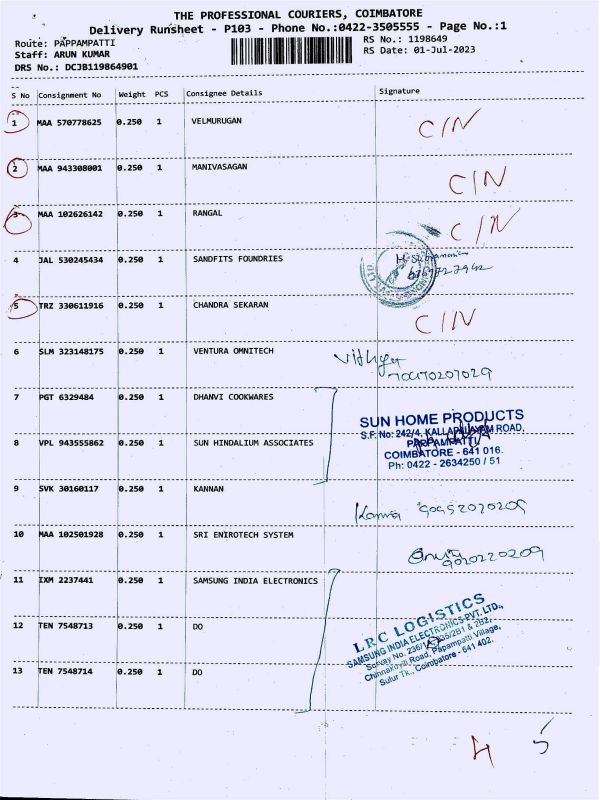 THE PROFESSIONAL COURIERS, COIMBATORE
Delivery Runsheet - P103 - Phone No.:0422-3505555 - Page No.:1
Route: PAPPAMPATTI RS No.: 1198649
Staff: ARUN KUMAR RS Date: 01-Jul-2023
DRS No.: DCJB119864901
S No Consignment No Weight PCS Consignee Details Signature
1 MAA 570778625 0.250 1 VELMURUGAN C/N
2 MAA 943308001 0.250 1 MANIVASAGAN C/N
3 MAA 102626142 0.250 1 RANGAL C/N
4 JAL 530245434 0.250 1 SANDFITS FOUNDRIES
5 TRZ 330611916 0.250 1 CHANDRA SEKARAN C/N
6 SLM 323148175 0.250 1 VENTURA OMNITECH Vithya
7 PGT 6329484 0.250 1 DHANVI COOKWARES
SUN HOME PRODUCTS
S.F. No: 242/4, KALLAPALAYAM ROAD,
PAPPAMPATTI,
COIMBATORE - 641 016.
Ph: 0422 - 2634250 / 51
8 VPL 943555862 0.250 1 SUN HINDALIUM ASSOCIATES
9 SVK 30160117 0.250 1 KANNAN
10 MAA 102501928 0.250 1 SRI ENIROTECH SYSTEM
11 IXM 2237441 0.250 1 SAMSUNG INDIA ELECTRONICS
LRC LOGISTICS
SAMSUNG INDIA ELECTRONICS PVT. LTD.,
Survey No. 236/ 2B1 & 2B2,
Chinnakuyili Road, Papampatti Village,
Sulur Tk., Coimbatore - 641 402.
12 TEN 7548713 0.250 1 DO
13 TEN 7548714 0.250 1 DO
4 5